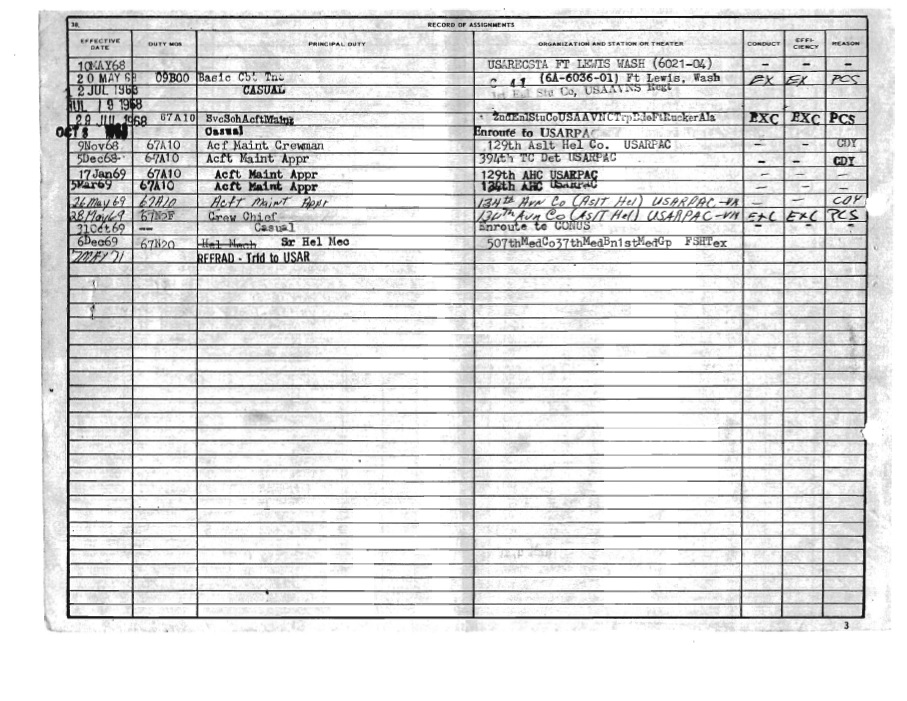 38. RECORD OF ASSIGNMENTS
EFFECTIVE DATE DUTY MOS PRINCIPAL DUTY ORGANIZATION AND STATION OR THEATER CONDUCT EFFI- CIENCY REASON
10MAY68 USARECSTA FT LEWIS WASH (6021-04) - - -
20 MAY 68 09B00 Basic Cbt Tng (6A-6036-01) Ft Lewis, Wash EX EX PCS
12 JUL 1968 CASUAL Stu Co, USAAVNS Regt
JUL 19 1968
29 JUL 1968 67A10 SvcSchAcftMaint 2ndEnlStuCoUSAAVNCTrpBdeFtRuckerAla EXC EXC PCS
OCT 8 Casual Enroute to USARPAC
9Nov68 67A10 Acf Maint Crewman 129th Aslt Hel Co. USARPAC - - CDY
5Dec68 67A10 Acft Maint Appr 394th TC Det USARPAC - - CDY
17Jan69 67A10 Acft Maint Appr 129th AHC USARPAC - - -
5Mar69 67A10 Acft Maint Appr 134th AHC USARPAC - - -
26May69 67A10 Acft Maint Appr 134th Avn Co (Aslt Hel) USARPAC-VN - - CDY
28May69 67N2F Crew Chief 134th Avn Co (Aslt Hel) USARPAC-VN EXC EXC PCS
31Oct69 -- Casual Enroute to CONUS - - -
6Dec69 67N20 Hel Mech Sr Hel Mec 507thMedCo37thMedBn1stMedGp FSHTex
7MAY71 REFRAD - Trfd to USAR
3